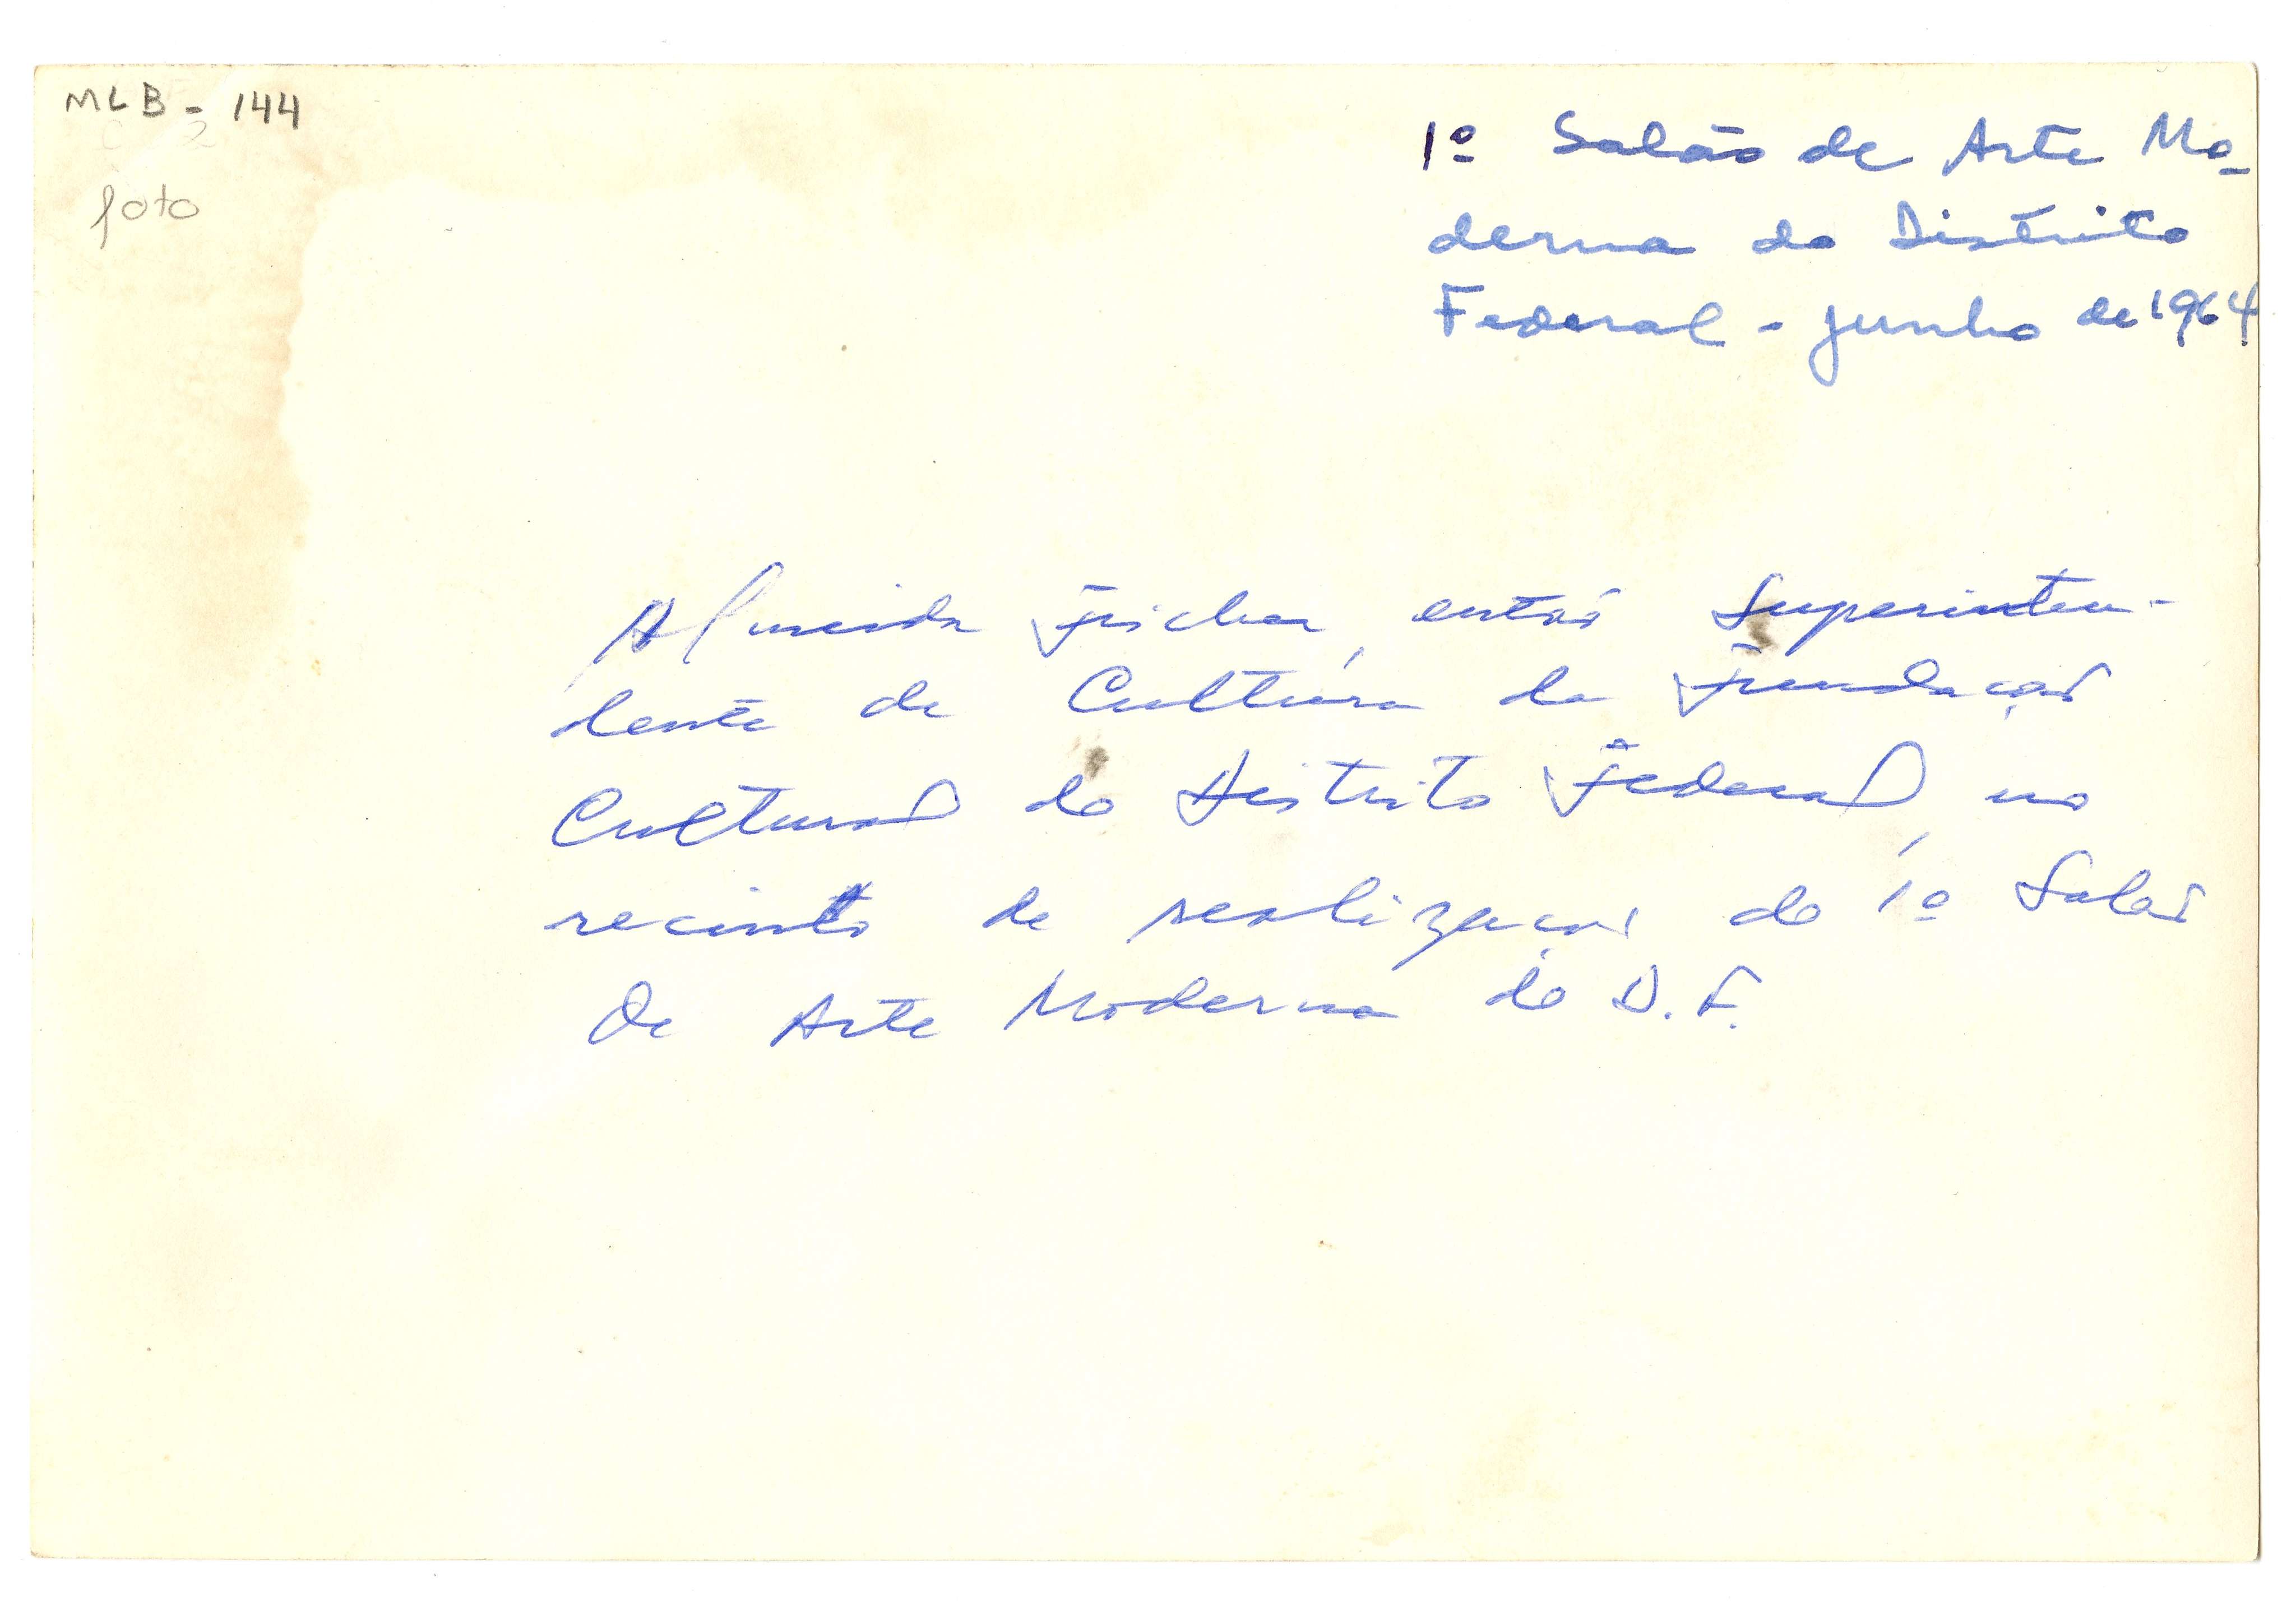 MLB - 144
foto
1º Salão de Arte Mo-
derna do Distrito
Federal - junho de 1964
Almeida Fischer, então Superinten-
dente de Cultura da Fundação
Cultural do Distrito Federal, no
recinto de realização do 1º Salão
de Arte Moderna do D.F.